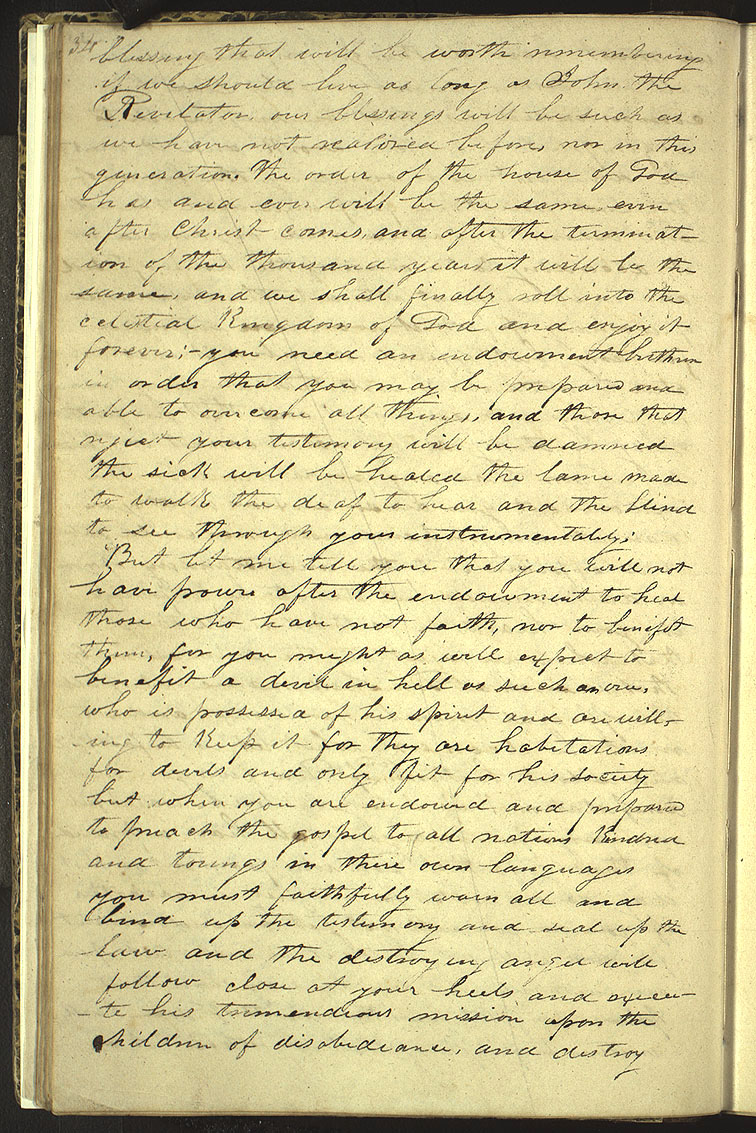 34
blessing that will be worth remembering
if we should live as long as John the
Revelator, our blessings will be such as
we have not realized before, nor in this
generation. The order of the house of God
has and ever will be the same, even
after Christ comes, and after the terminat-
ion of the thousand years it will be the
same, and we shall finally roll into the
celestial Kingdom of God and enjoy it
forever;- you need an endowment brethren
in order that you may be prepared and
able to overcome all things, and those that
reject your testimony will be damned
the sick will be healed the lame made
to walk the deaf to hear and the blind
to see through your instrumentality;
But let me tell you that you will not
have power after the endowment to heal
those who have not faith, nor to benifit
them, for you might as well expect to
benefit a devil in hell as such an one,
who is possessed of his spirit and are will-
ing to keep it for they are habitations
for devils and only fit for his society
but when you are endowed and prepared
to preach the gospel to all nations kindred
and toungs in there own languages
you must faithfully warn all and
bind up the testimony and seal up the
law and the destroying angel will
follow close at your heels and execu-
-te his tremendious mission upon the
children of disobediance, and destroy